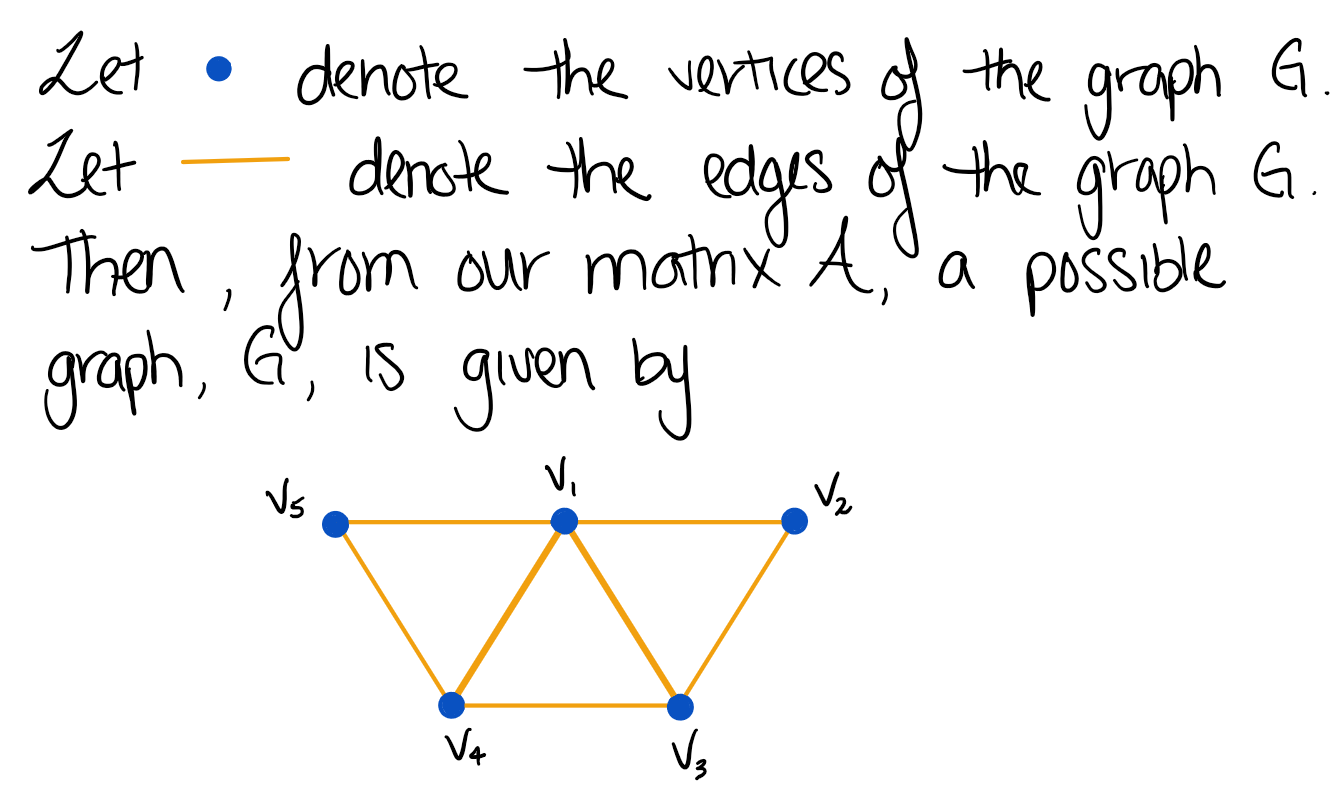 Let • denote the vertices of the graph G.
Let — denote the edges of the graph G.
Then, from our matrix A, a possible
graph, G, is given by
V₅ V₁ V₂
V₄ V₃